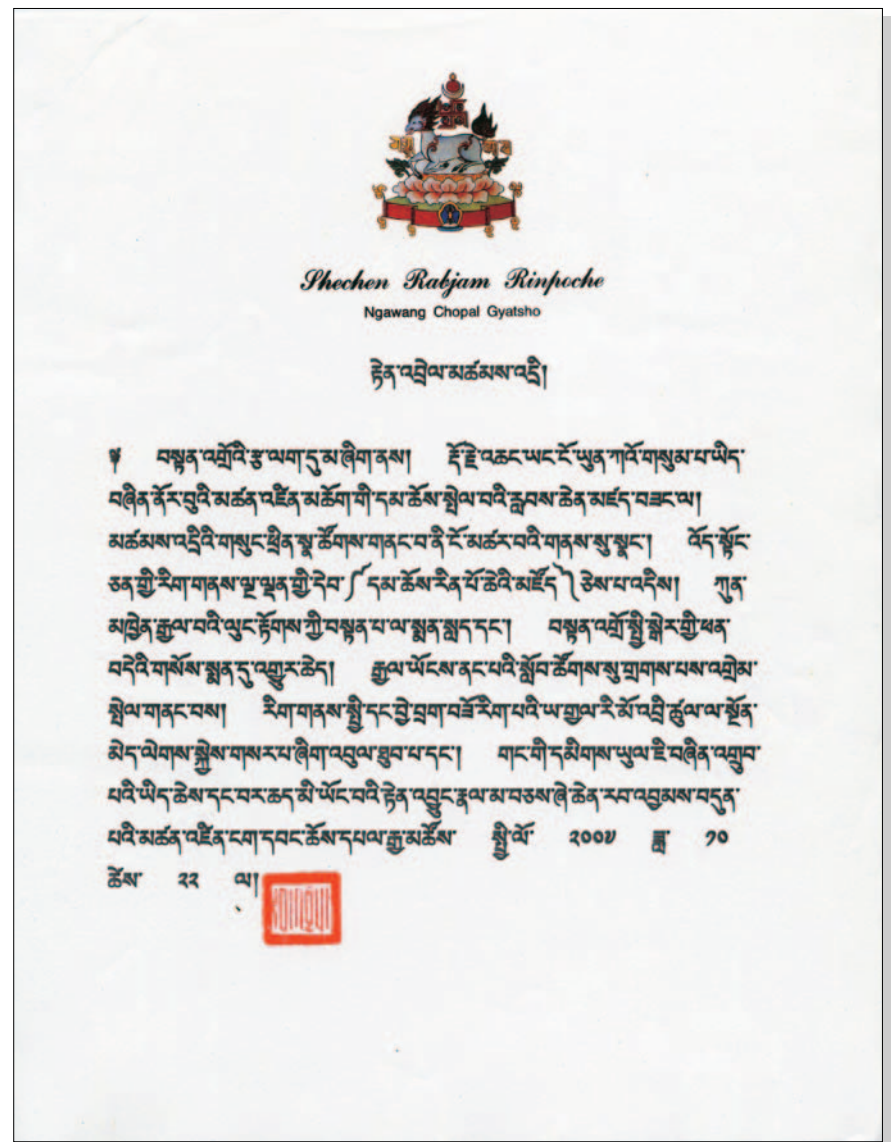 Shechen Rabjam Rinpoche
Ngawang Chopal Gyatsho
རྟེན་འབྲེལ་མཚམས་འདྲི།
༧ བསྟན་འགྲོའི་རྩ་ལག་དུ་མ་ཞིག་ནས། རྡོ་རྗེ་འཆང་ཡང་ངོ་ཡུན་ཀའོ་གསུམ་པ་ཡིད་
བཞིན་ནོར་བུའི་མཚན་འཛིན་མཆོག་གི་དམ་ཆོས་སྤེལ་བའི་རླབས་ཆེན་མཛད་བཟང་ལ།
མཚམས་འདྲིའི་གསུང་ཕྲིན་སྣ་ཚོགས་གནང་བ་ནི་ངོ་མཚར་བའི་གནས་སུ་སྣང་། འོད་སྟོང་
ཅན་གྱི་རིག་གནས་ལྔ་ལྡན་གྱི་དེབ་༼དམ་ཆོས་རིན་པོ་ཆེའི་མཛོད༽ཅེས་པ་འདིས། ཀུན་
མཁྱེན་རྒྱལ་བའི་ལུང་རྟོགས་ཀྱི་བསྟན་པ་ལ་སྨན་སླད་དང་། བསྟན་འགྲོ་སྤྱི་སྒེར་གྱི་ཕན་
བདེའི་གསོས་སྨན་དུ་འགྱུར་ཆེད། རྒྱལ་ཡོངས་ནང་པའི་སློབ་ཚོགས་སུ་གྲགས་པས་འགྲེམ་
སྤེལ་གནང་བས། རིག་གནས་སྤྱི་དང་བྱེ་བྲག་བཟོ་རིག་པའི་ཡ་གྱལ་རི་མོ་འབྲི་ཚུལ་ལ་སྔོན་
མེད་ལེགས་སྐྱེས་གསརཔ་ཞིག་འབུལ་ཐུབ་པ་དང་། གང་གི་དམིགས་ཡུལ་ཇི་བཞིན་འགྲུབ་
པའི་ཡིད་ཆེས་དང་བར་ཆད་མི་ཡོང་བའི་རྟེན་འབྱུང་རྣལ་མ་བཅས་ཞེ་ཆེན་རབ་འབྱམས་བདུན་
པའི་མཚན་འཛིན་ངག་དབང་ཆོས་དཔལ་རྒྱ་མཚོས་ སྤྱི་ལོ་ ༢༠༠༦ ཟླ་ ༡༠
ཚེས་ ༢༢ ལ།